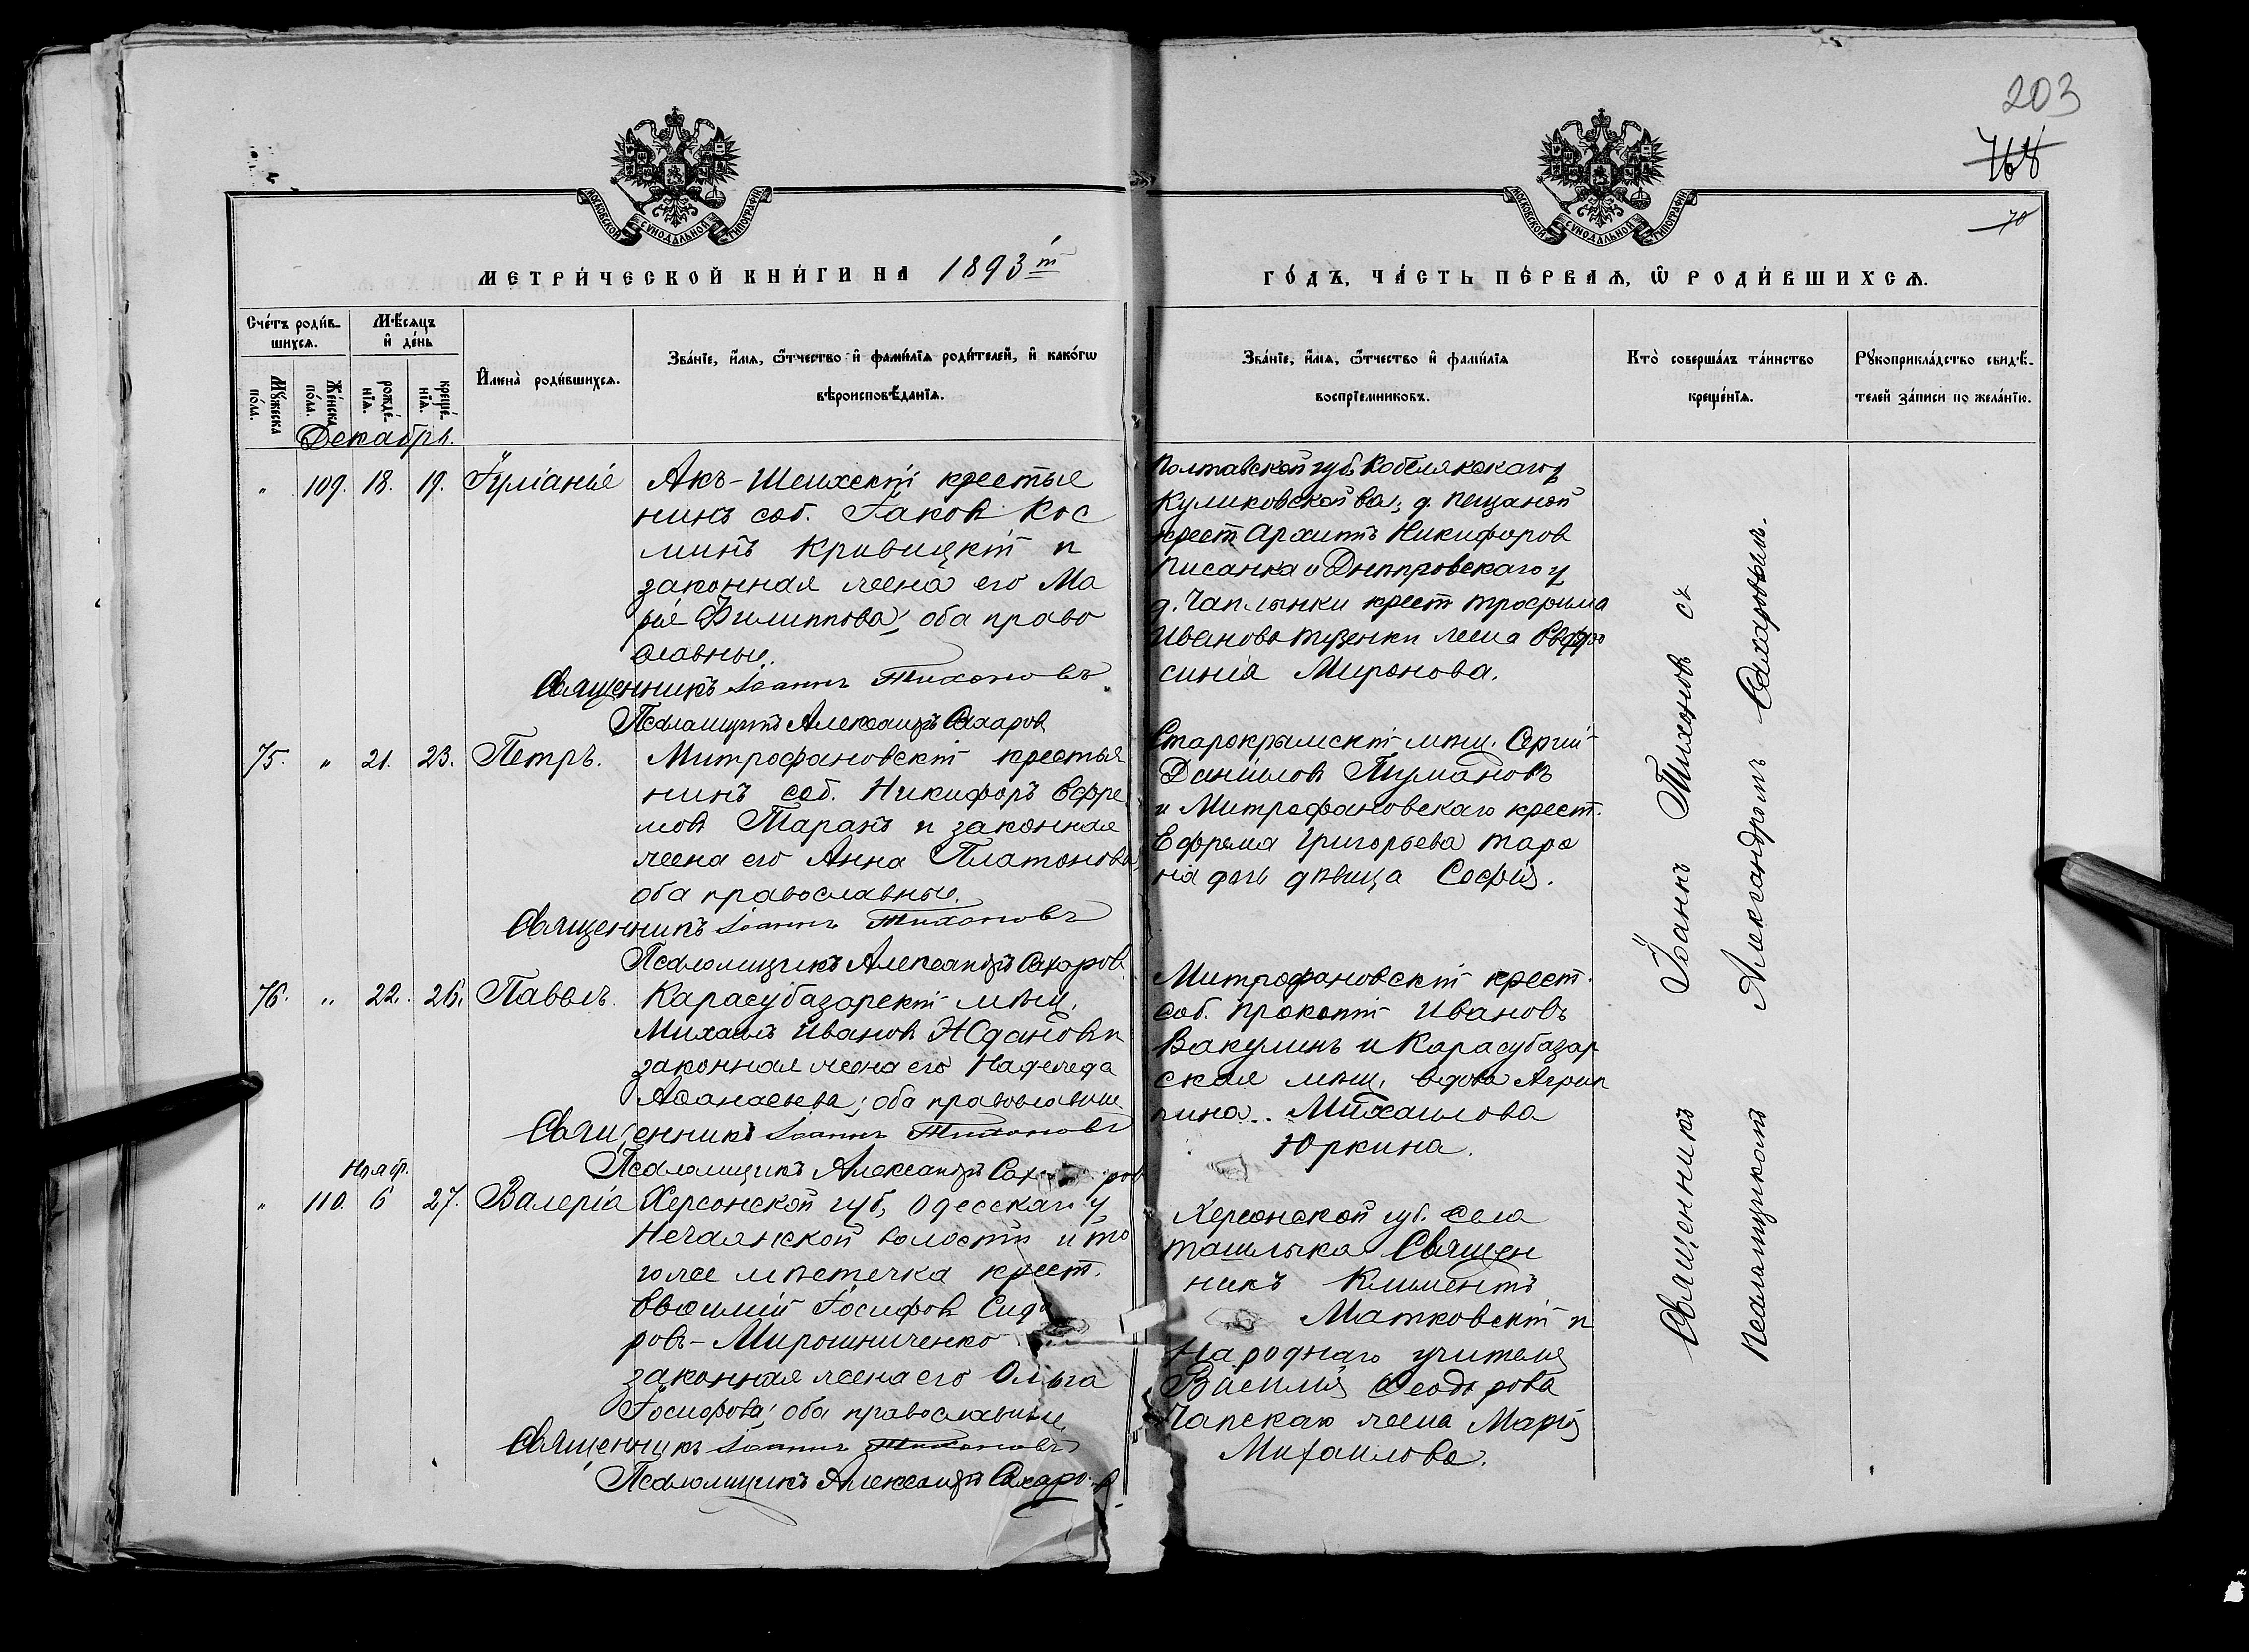 203
168
70
МОСКОВСКОЙ СѴНОДАЛЬНОЙ ТИПОГРАФІИ
МОСКОВСКОЙ СѴНОДАЛЬНОЙ ТИПОГРАФІИ
МЕТРИ́ЧЕСКОЙ КНИ́ГИ НА 1893 й
ГО́ДЪ, ЧА́СТЬ ПЕ́РВАѦ, Ѡ РОДИ́ВШИХСѦ.
Сче́тъ роди́в-
шихсѧ.
Мѣ́сѧцъ
и де́нь
Мꙋ́жеска по́ла.
Же́нска по́ла.
рожде́нїѧ.
креще́нїѧ.
И҆мена̀ роди́вшихсѧ.
Зва́нїе, и҆́мѧ, ѻ҆́тчество и҆ фами́лїѧ роди́телей, и҆ како́гѡ
вѣроисповѣ́данїѧ.
Зва́нїе, и҆́мѧ, ѻ҆́тчество и҆ фами́лїѧ
воспрїе́мниковъ.
Кто̀ соверша́лъ та́инство
креще́нїѧ.
Рꙋкоприкла́дство свидѣ́-
телей за́писи по жела́нїю.
Декабрь.
" 109. 18. 19. Іуліанія
Акъ-Шеихскій крестья
нинъ соб. Іаковъ Кос
минъ Кривицкій и
законная жена его Ма
рія Филиппова; оба право
славные.
Священникъ Іоаннъ Тихоновъ
Псаломщикъ Александръ Сахаров
Полтавской губ. Кобелякскаго у
Куликовской вол; д. Пещаной
крест Архипъ Никифоров
Писанка и Днѣпровскаго у
д. Чаплынки крест Трофима
Иванова Тузенки жена Евфро
синія Миронова.
75. " 21. 23. Петръ.
Митрофановскій крестья
нинъ соб. Никифоръ Ефре
мовъ Таранъ и законная
жена его Анна Платонова,
оба православные.
Священникъ Іоаннъ Тихоновъ
Псаломщикъ Александръ Сахаров.
Старокрымскій мѣщ. Сергій
Даніиловъ Тумановъ
и Митрофановскаго крест.
Ефрема Григорьева Тара
на дочь дѣвица Софія.
76. " 22. 26. Павелъ.
Карасубазарскій мѣщ.
Михаилъ Ивановъ Ждановъ и
законная жена его Надежда
Аѳанасьева; оба православные
Священникъ Іоаннъ Тихоновъ
Псаломщикъ Александръ Сахаров
Митрофановскій крест.
соб. Прокопій Ивановъ
Вакулинъ и Карасубазар
ская мѣщ. вдова Агрип
пина Михаилова
Юркина.
Ноябр.
" 110. 6 27. Валерія
Херсонской губ, Одесскаго у
Нечаянской волости и то
гоже мѣстечка крест.
Евѳимій Іосифовъ Сидо
ровъ-Мирошниченко
законная жена его Ольга
Іосифова; оба православные
Священникъ Іоаннъ Тихоновъ
Псаломщикъ Александръ Сахаров
Херсонской губ. села
Ташлыка Священ
никъ Климентъ
Матковскій и
Народнаго учителя
Василія Ѳеодорова
Чапскаго жена Марія
Михаилова.
Священникъ Іоаннъ Тихонов съ
Псаломщикомъ Александромъ Сахаровым.